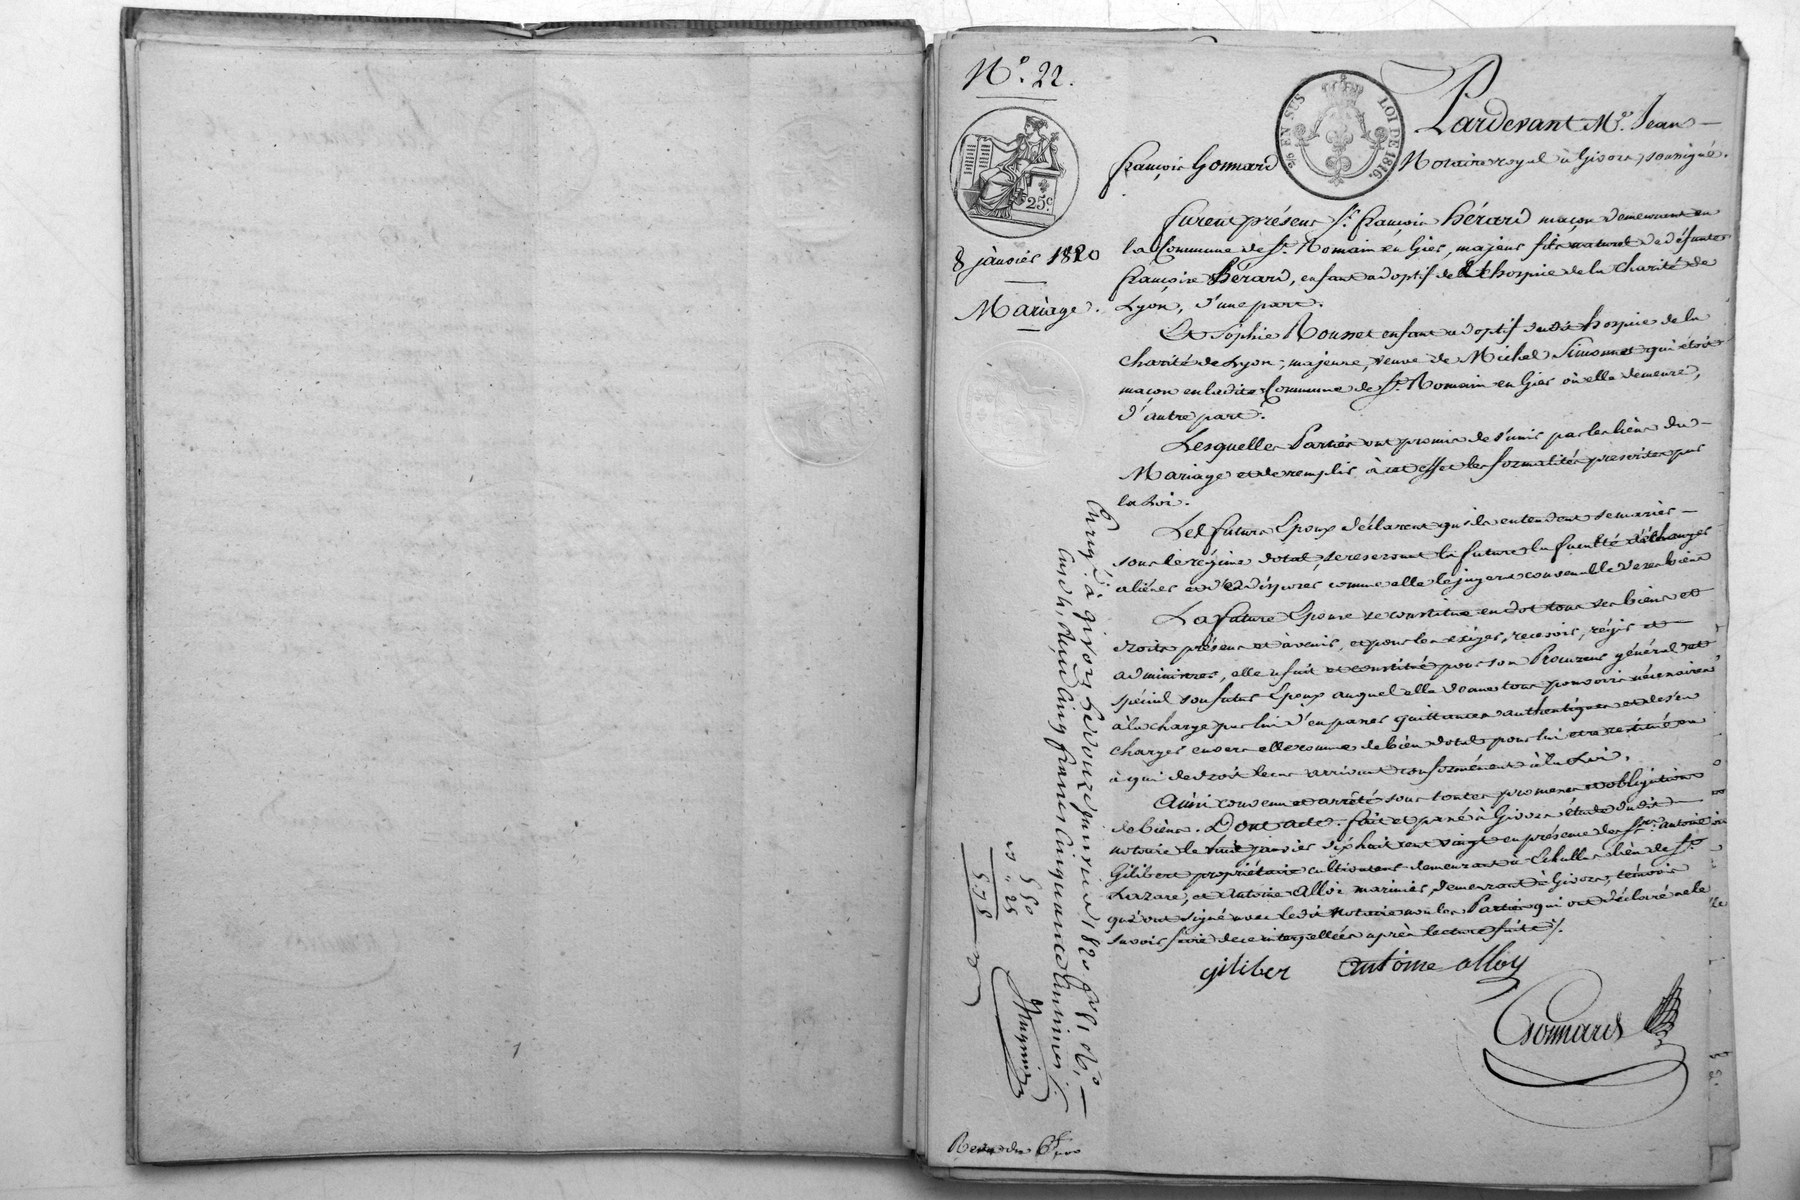 N.° 22.
25 EN SUS LOI DE 1816.
25.c
8 janvier 1820
Mariage.
Pardevant M.e Jean
françois Gonnard Notaire royal à Givors, soussigné.
furent présens S.r françois hérard maçon demeurant en
la Commune de S.t Romain en Gier, majeur fils naturel de défunte
françoise hérard, enfant adoptif de l'hospice de la charité de
Lyon, d'une part.
Et Sophie Rousset enfant adoptif dudit hospice de la
charité de Lyon, majeure, veuve de Michel Simonet qui étoit
maçon en ladite Commune de S.t Romain en Gier où elle demeure,
d'autre part.
Lesquelles Parties ont promis de s'unir par les liens du
Mariage et de remplir à cet effet les formalités prescrites par
la Loi.
Les futurs Epoux déclarent qu'ils entendent se marier
sous le régime dotal, se reservant la future la faculté d'échanger
aliéner et disposer comme elle le jugera convenable de ses biens
La future Epouse se constitue en dot tous ses biens et
droits présens et à venir, et pour les exiger, recevoir, régir et
administrer, elle a fait et constitué pour son Procureur général et
spécial son futur Epoux auquel elle donne tous pouvoirs nécessaires
à la charge par lui d'en passer quittances authentiques et de s'en
charger envers elle comme de bien dotal pour lui etre restitué ou
à qui de droit le cas arrivant conformément à la Loi.
Ainsi convenu et arrêté sous toutes promesses et obligations
de biens. Dont acte. fait et passé à Givors étude dudit
notaire le huit janvier dix huit cent vingt en présence des S.rs antoine
Gilibert propriétaire cultivateur demeurant à Echallas lieu de S.t
Lazare, et Antoine Alloi marinier, demeurant à Givors, témoins
qui ont signé avec ledit notaire non les Parties qui ont déclaré ne le
savoir faire de ce interpellées après lecture faite ./.
giliber antoine alloy
Gonnard
Enreg.é à givors le douze janvier 1820 f.° 81 v.°
Case 4, reçu cinq francs cinquante centimes
5 50
" 55